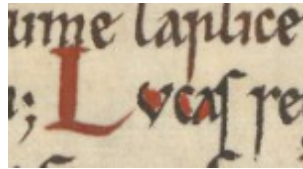 ume laplice
; Lucaſ re